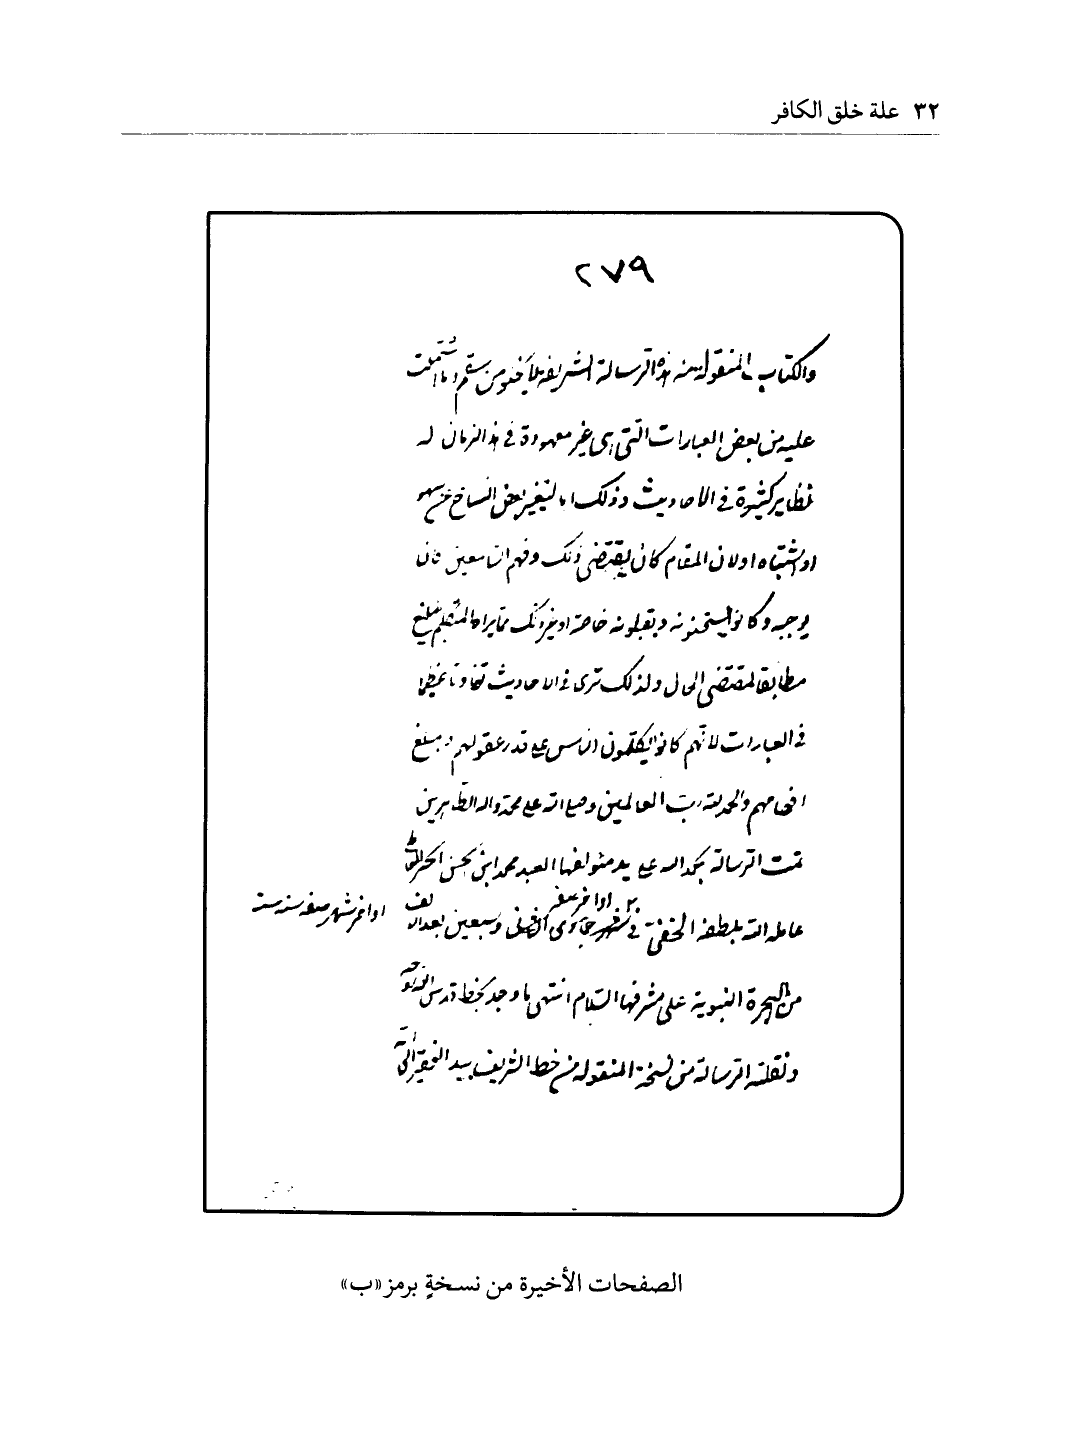 ٣٢ علة خلق الكافر
٢٧٩
والكتاب المنقولة منه هذه الرسالة الشريفة لا يخلو من سقم وما اشتملت
عليه من بعض العبارات التي هي غير معهودة في هذا الزمان له
نظاير كثيرة في الاحاديث وذلك اما لتغير بعض النساخ عن سهو
او اشتباه اولان المقام كان يقتضي ذلك وفهم السامعين كان
يوجبه وكانوا يستحسنونه ويقبلونه خاصة او غير ذلك مما يراه المتكلم البليغ
مطابقا لمقتضى الحال ولذلك ترى في الاحاديث تفاوتا عظيما
في العبارات لانهم كانوا يكلمون الناس على قدر عقولهم ومبلغ
افهامهم والحمد لله رب العالمين وصلى الله على محمد واله الطاهرين
تمت الرسالة بحمد الله على يد مؤلفها العبد محمد ابن الحسن الحر
عامله الله بلطفه الخفي في ٢٠ شهر جمادى الثاني وسبعين بعد الالف
اواخر صفر
اواخر شهر صفر سنة ستة
من الهجرة النبوية على مشرفها السلام انتهى ما وجد بخط قدس الله روحه
ونقلت الرسالة من نسخة المنقولة من خط الشريف بيد الفقير الى
الصفحات الأخيرة من نسخةٍ برمز «ب»